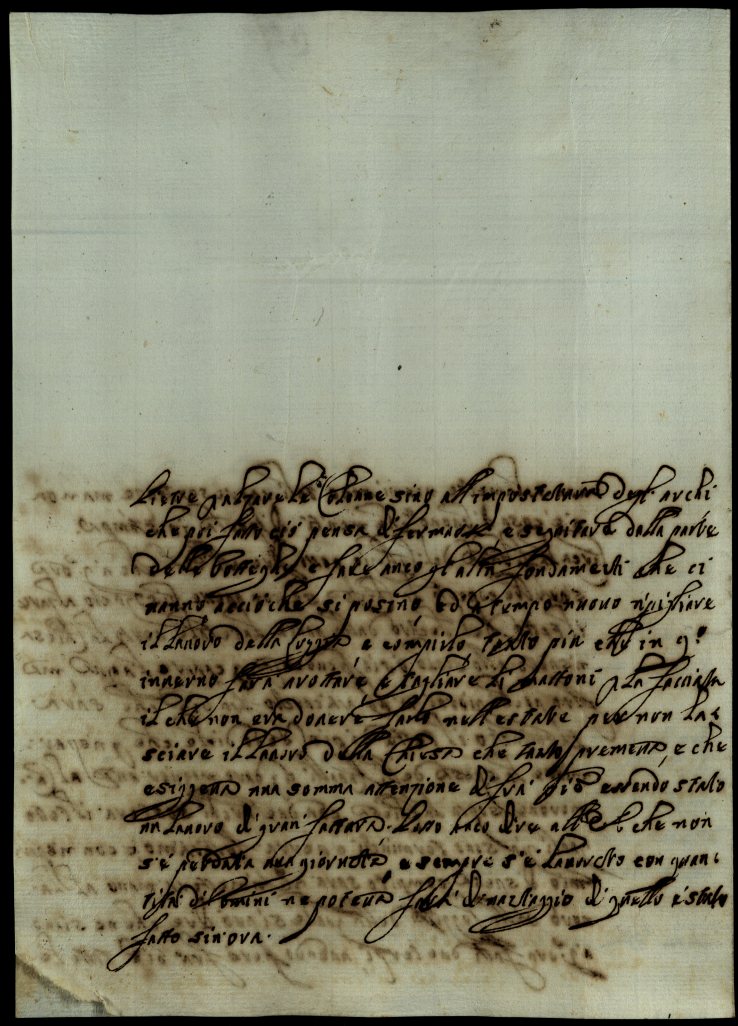 che poi fatto ciò pensa di fermare e seguitare dalla parte
delle botteghe e fare anco gl'altri fondamenti che ci
vanno acciòche si posino et à tempo nuovo ripigliare
il lavoro della e compirlo, tanto più che in q.o
inverno farà arottare e tagliare li mattoni p la facciata
il che non era dovere farlo nell'estate per non la:
sciare il lavoro della Chiesa che tanto premeva, e che
esiggeva una somma attenzione di frà essendo stato
un lavoro di gran fattura. Posso anco dire che non
s'è perduta una giornata e sempre s'è lavorato con quan:
tità d'Omini ne poteva farsi di vantaggio di quello è stato
fatto sin'ora.